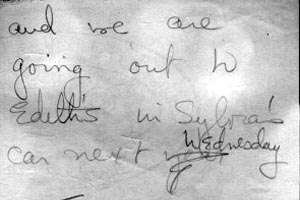 and we are
going out to
Edith's in Sylvia's
car next Wednesday